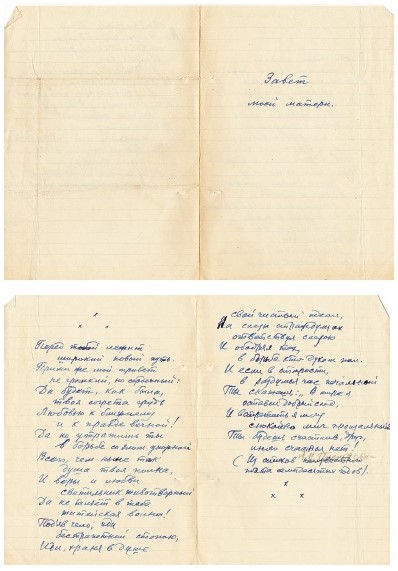 Завет
моей матери.
Перед тобой лежит
широкий новый путь.
Прими же мой привет
не громкий, но сердечный:
Да будет, как была,
твоя согрета грудь
Любовью к ближнему
и к правде вечной!
Да не утратишь ты
в борьбе со злом упорной
Всего, чем ныне так
душа твоя полна,
И веры и любви
светильник животворный
Да не зальёт в тебе
житейская волна!
Подъяв чело, иди
бестрепетной стопою,
Иди, храня в душе
свой чистый идеал,
На слёзы страждущих
ответствуя слезою
И ободряя тех,
в борьбе кто духом пал.
И если в старости,
в раздумья час печальный
Ты скажешь: „В мире я
оставил добрый след
И встретить я могу
спокойно миг прощальный"
Ты будешь счастлив, друг,
иного счастья нет.
(Из стихов